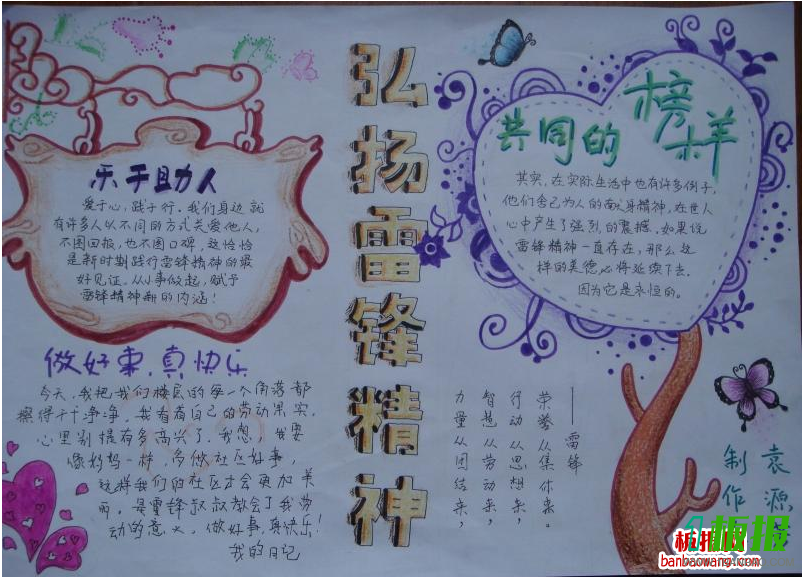 弘扬雷锋精神
乐于助人
爱于心，践于行。我们身边就
有许多人以不同的方式关爱他人，
不图回报，也不图口碑，这恰恰
是新时期践行雷锋精神的最
好见证。从小事做起，赋予
雷锋精神新的内涵！
共同的榜样
其实，在实际生活中也有许多例子，
他们舍己为人的献身精神，在世人
心中产生了强烈的震撼。如果说
雷锋精神一直存在，那么这
样的美德必将延续下去，
因为它是永恒的。
做好事，真快乐
今天，我把我们楼层的每一个角落都
擦得干干净净，我看着自己的劳动果实，
心里别提有多高兴了。我想，我要
像妈妈一样，多做社区好事，
这样我们的社区才会更加美
丽，是雷锋叔叔教会了我劳
动的意义，做好事，真快乐！
我的日记
力量从团结来，
智慧从劳动来，
行动从思想来，
荣誉从集体来。
——雷锋
制作
袁源
板报网
banbaowang.com
板报
baowang.com